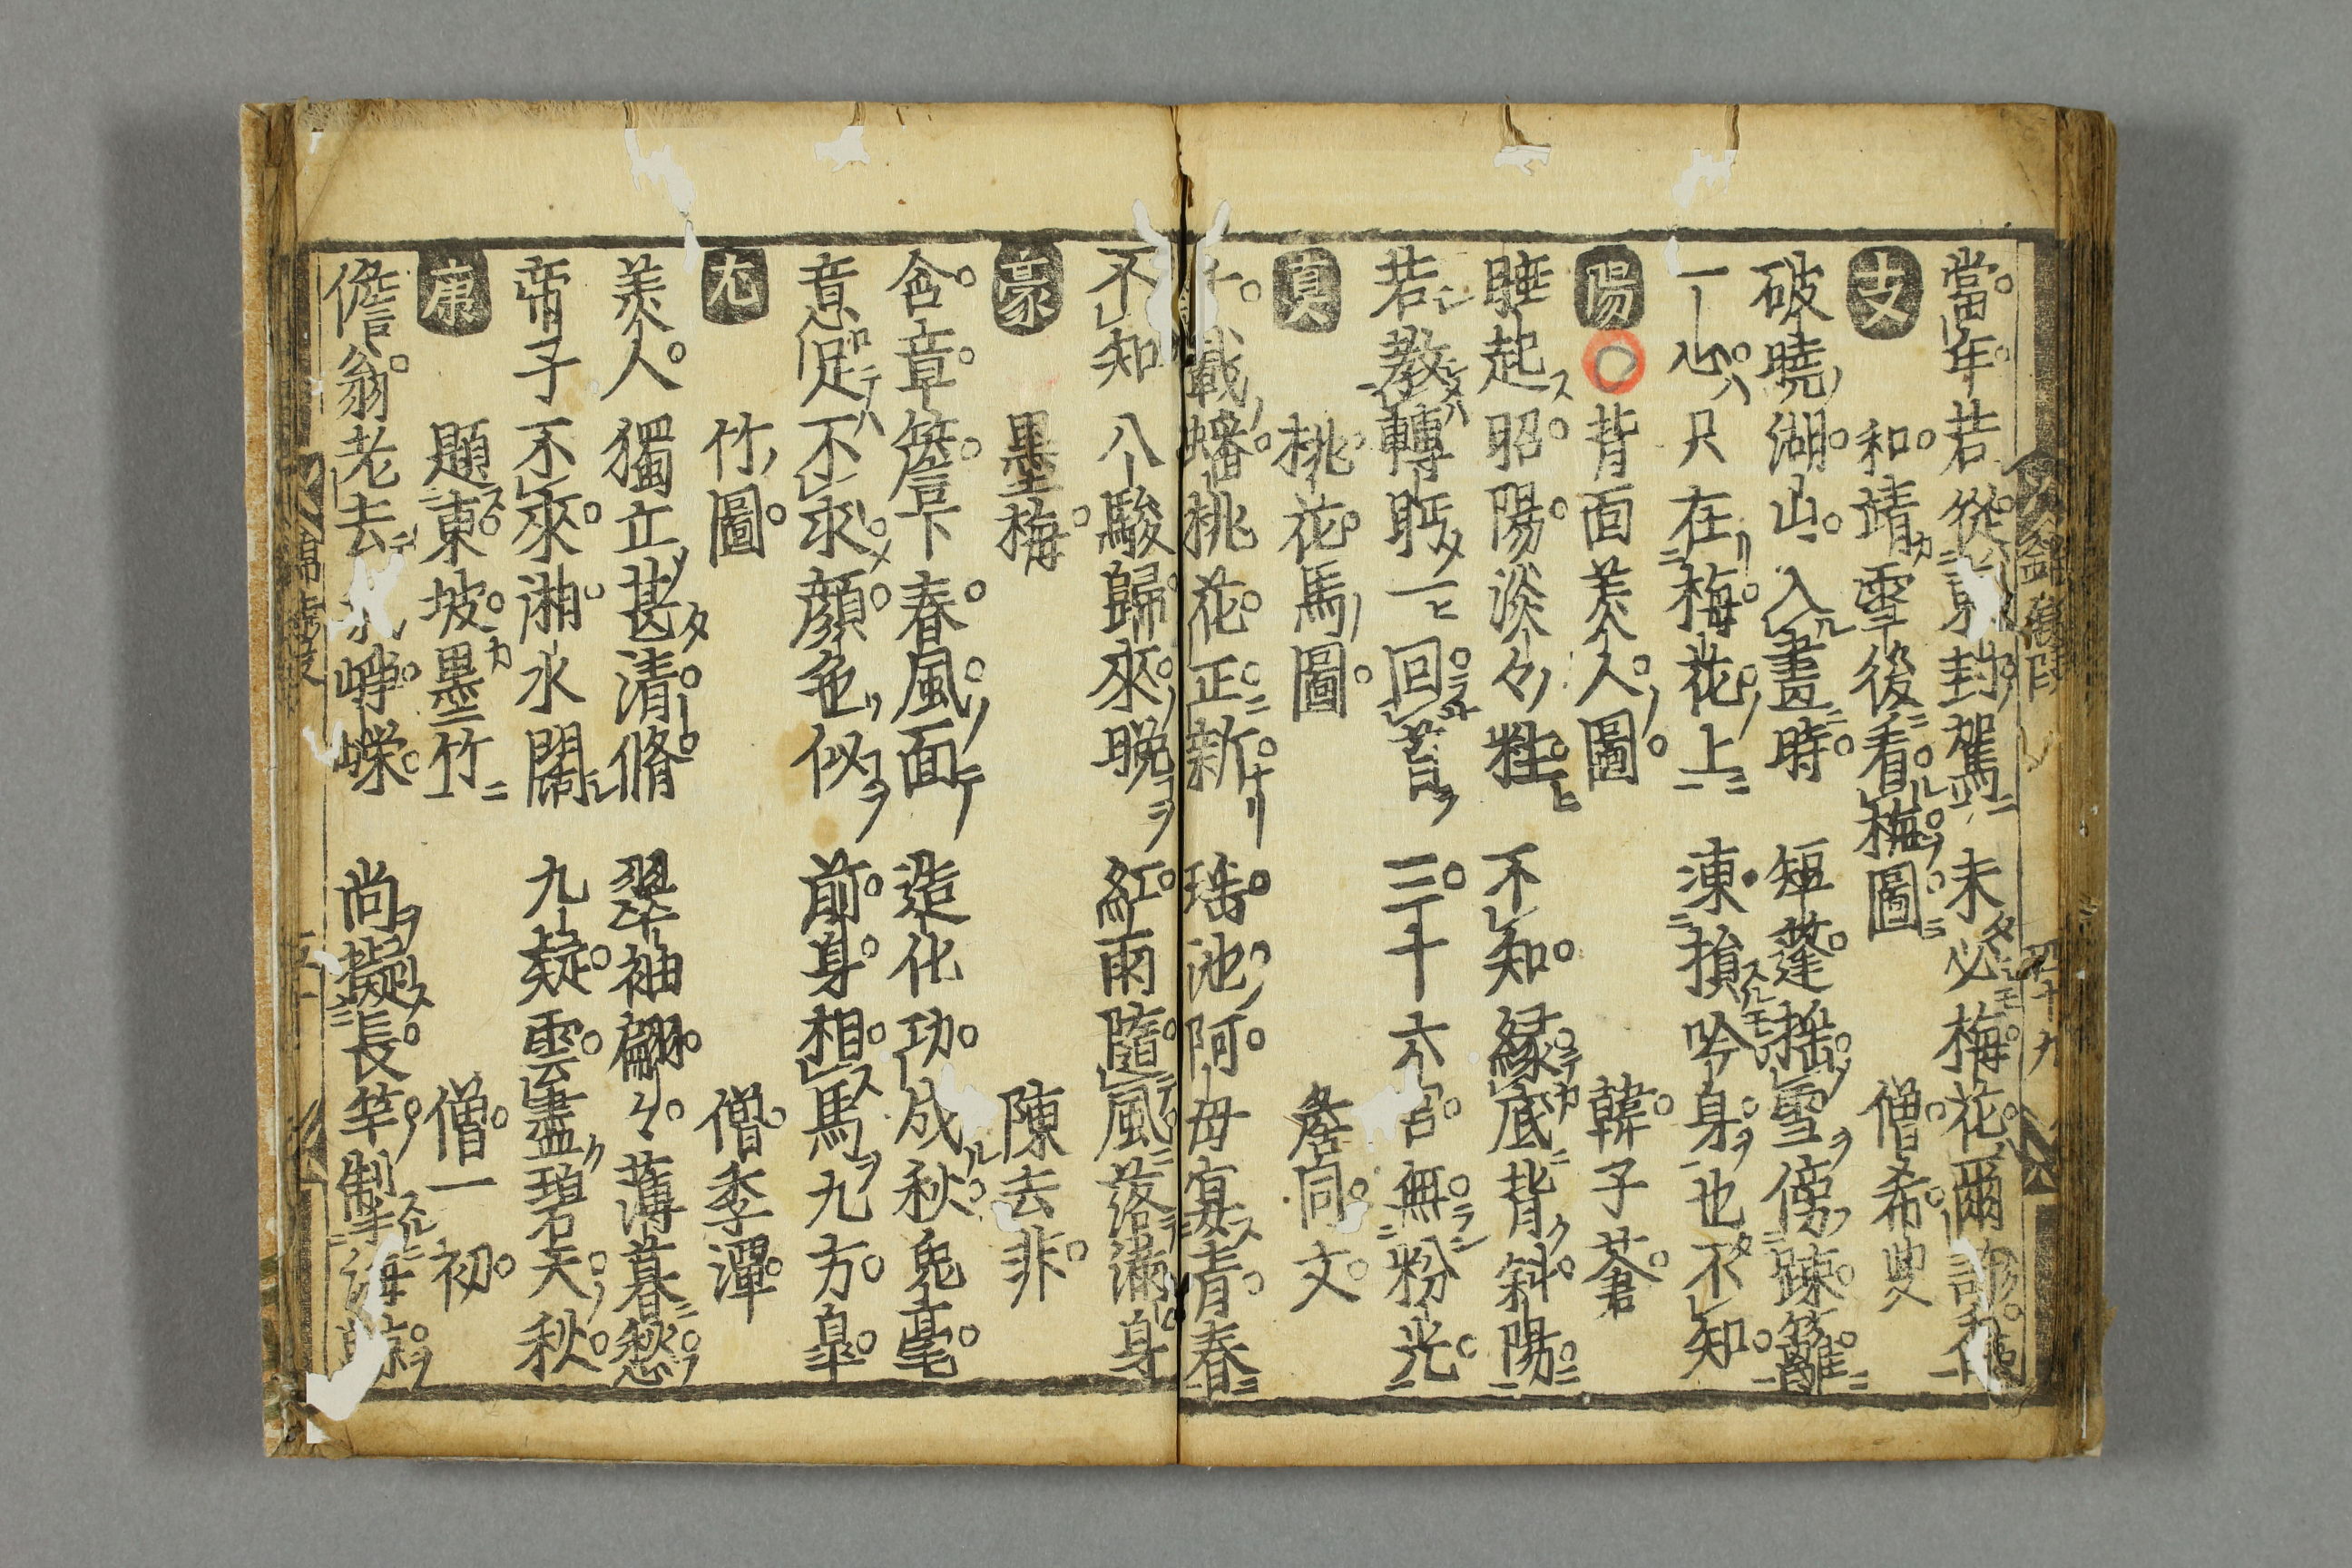 當年若從封駕 未必梅花爾
支 和靖雪後看梅圖 僧希叟
破曉湖山入畫時 短蓬搖雪傍踈籬
一心只在梅花上 凍損吟身也不知
陽 背面美人圖 韓子蒼
睡起昭陽淡々粧 不知縁底背斜陽
若教轉眄一回首 三十六宮無粉光
真 桃花馬圖 詹同文
千載蟠桃花正新 瑶池阿母宴青春
不知八駿歸來晩 紅雨隨風落満身
豪 墨梅 陳去非
含章簷下春風面 造化功成秋兔毫
意足不求顔色似 前身相馬九方皐
尤 竹圖 僧季潭
美人獨立甚清脩 翠袖翩々薄暮愁
帝子不來湘水闊 九疑雲盡碧天秋
庚 題東坡墨竹 僧一初
儋翁老去崢嶸 尚擬長竿掣海
四十九